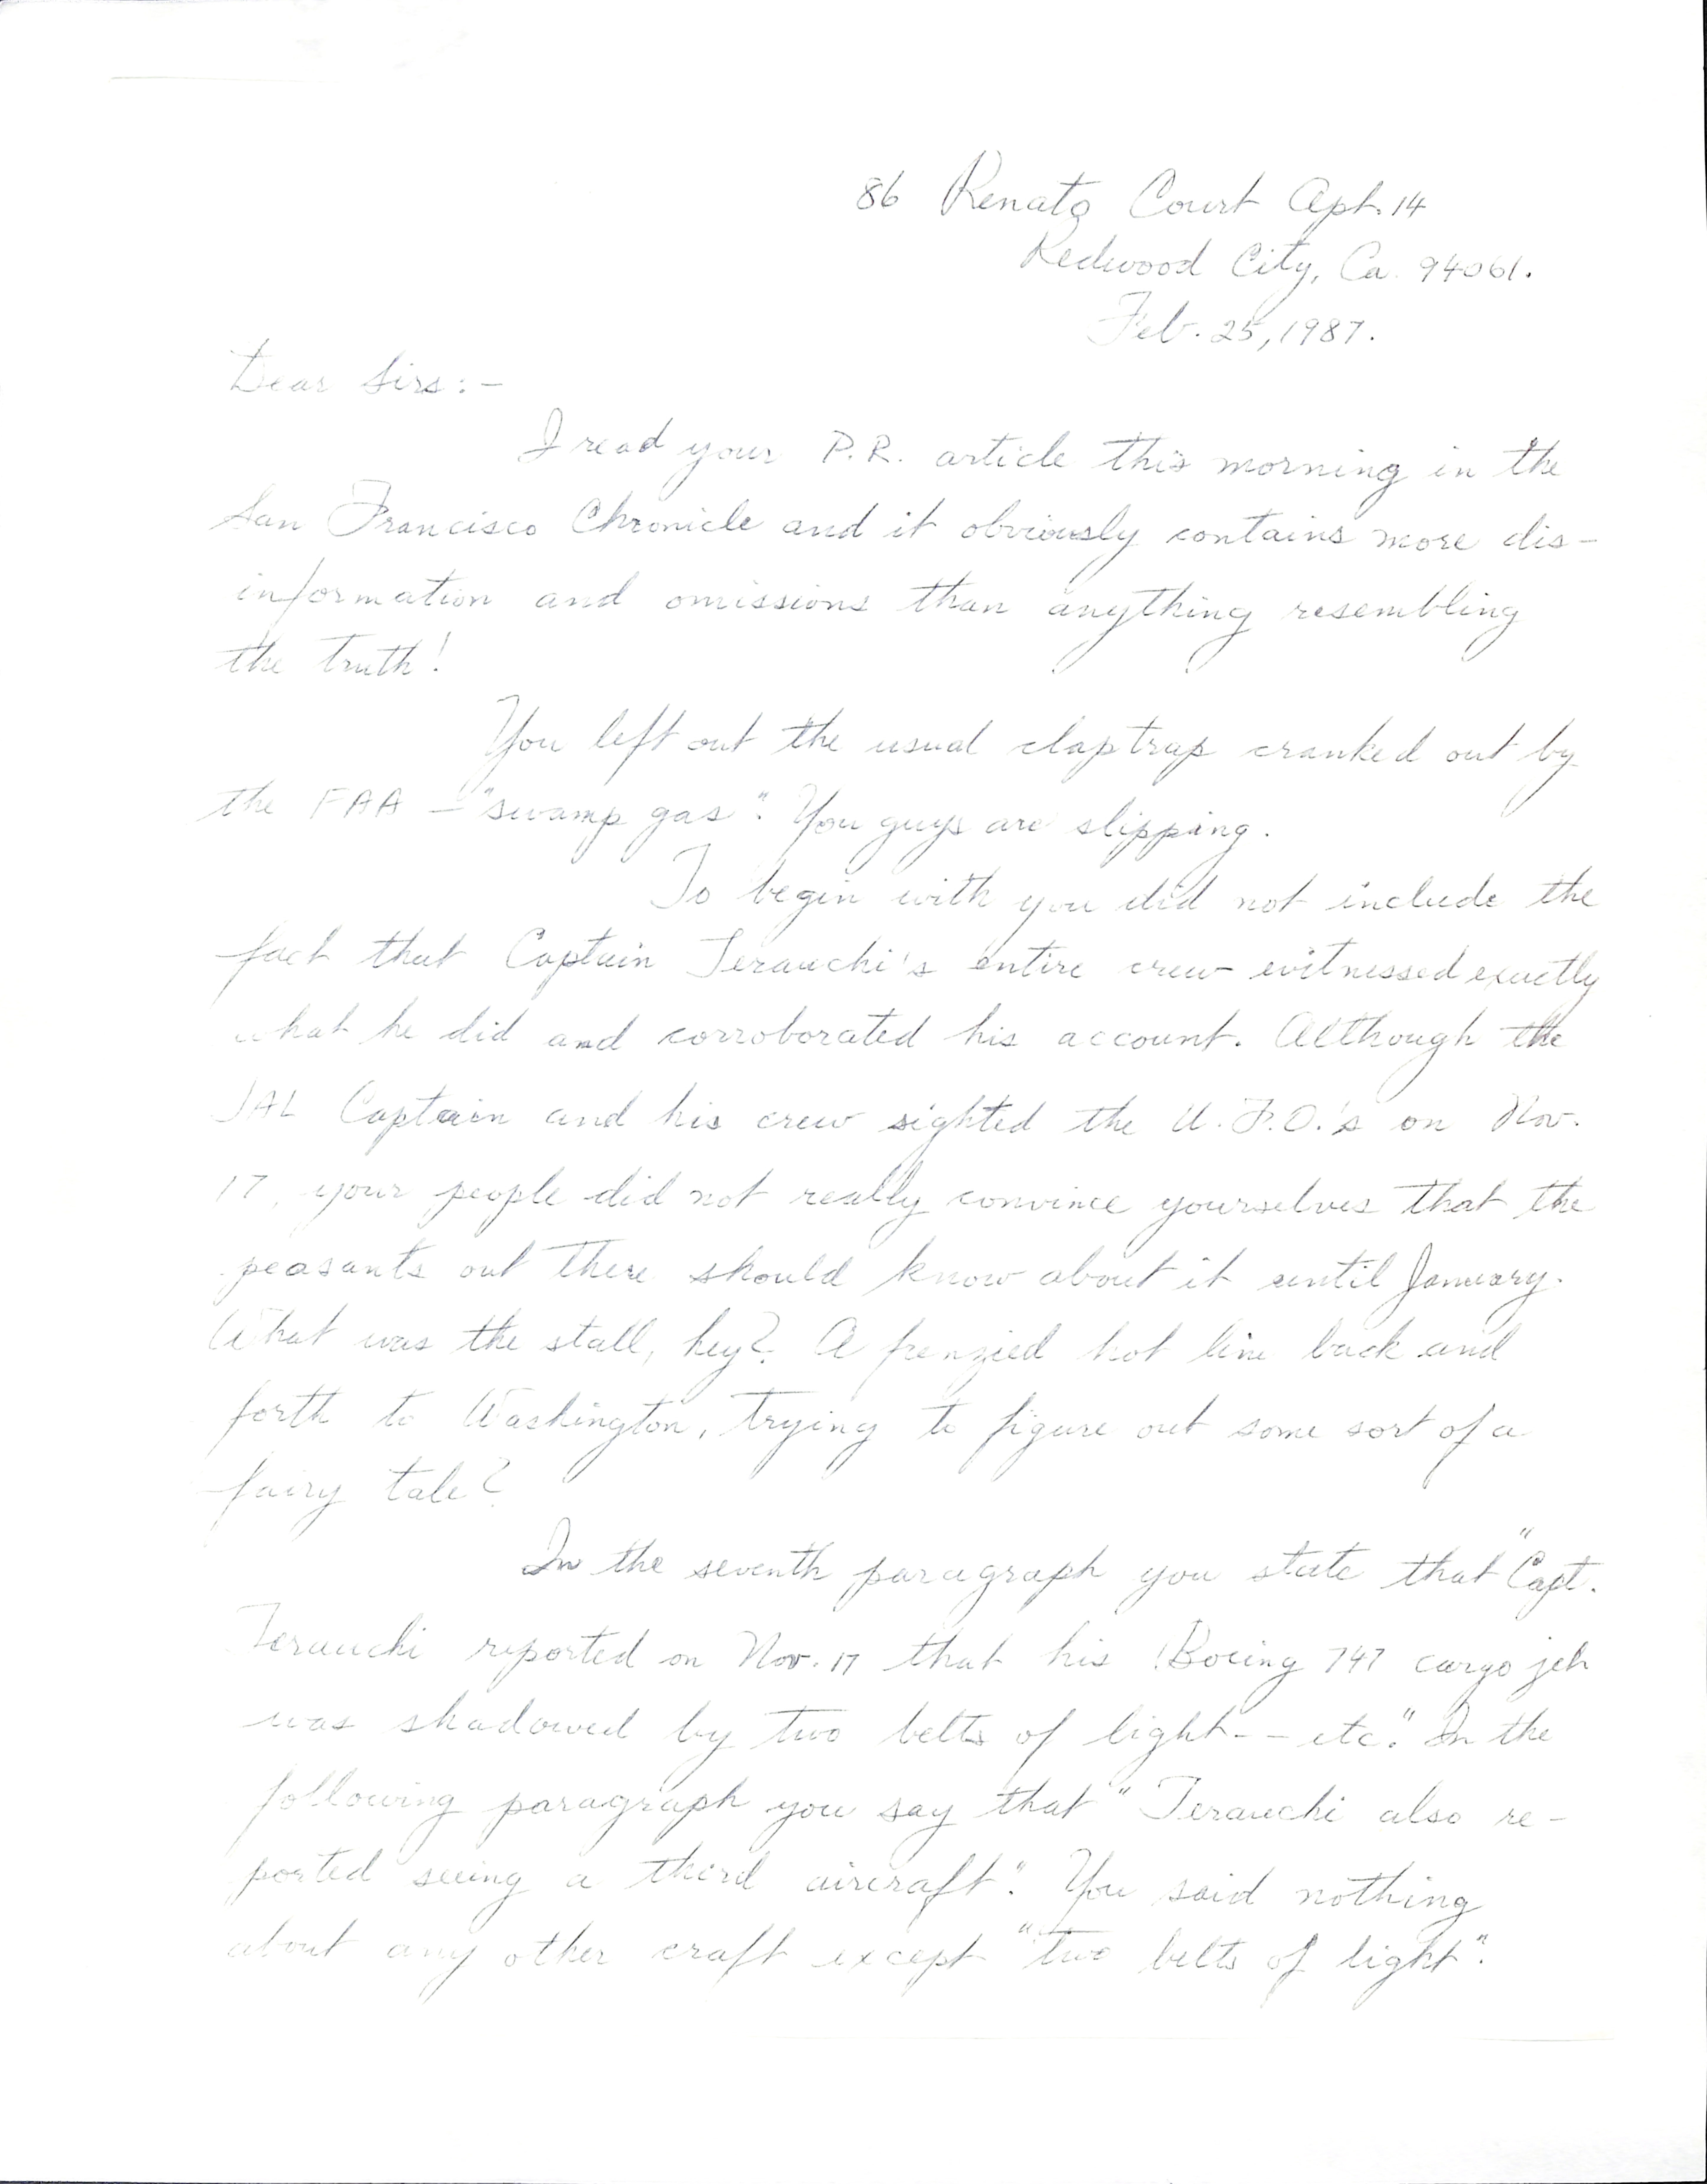 86 Renato Court Apt. 14
Redwood City, Ca. 94061.
Feb. 25, 1987.
Dear Sirs:-
I read your P.R. article this morning in the
San Francisco Chronicle and it obviously contains more dis-
information and omissions than anything resembling
the truth!
You left out the usual claptrap cranked out by
the FAA - "swamp gas". You guys are slipping.
To begin with you did not include the
fact that Captain Terauchi's entire crew witnessed exactly
what he did and corroborated his account. Although the
JAL Captain and his crew sighted the U.F.O.'s on Nov.
17, your people did not really convince yourselves that the
peasants out there should know about it until January.
What was the stall, hey? A frenzied hot line back and
forth to Washington, trying to figure out some sort of a
fairy tale?
In the seventh paragraph you state that "Capt.
Terauchi reported on Nov. 17 that his Boeing 747 cargo jet
was shadowed by two belts of light -- etc." In the
following paragraph you say that "Terauchi also re-
ported seeing a third aircraft". You said nothing
about any other craft except "two belts of light".